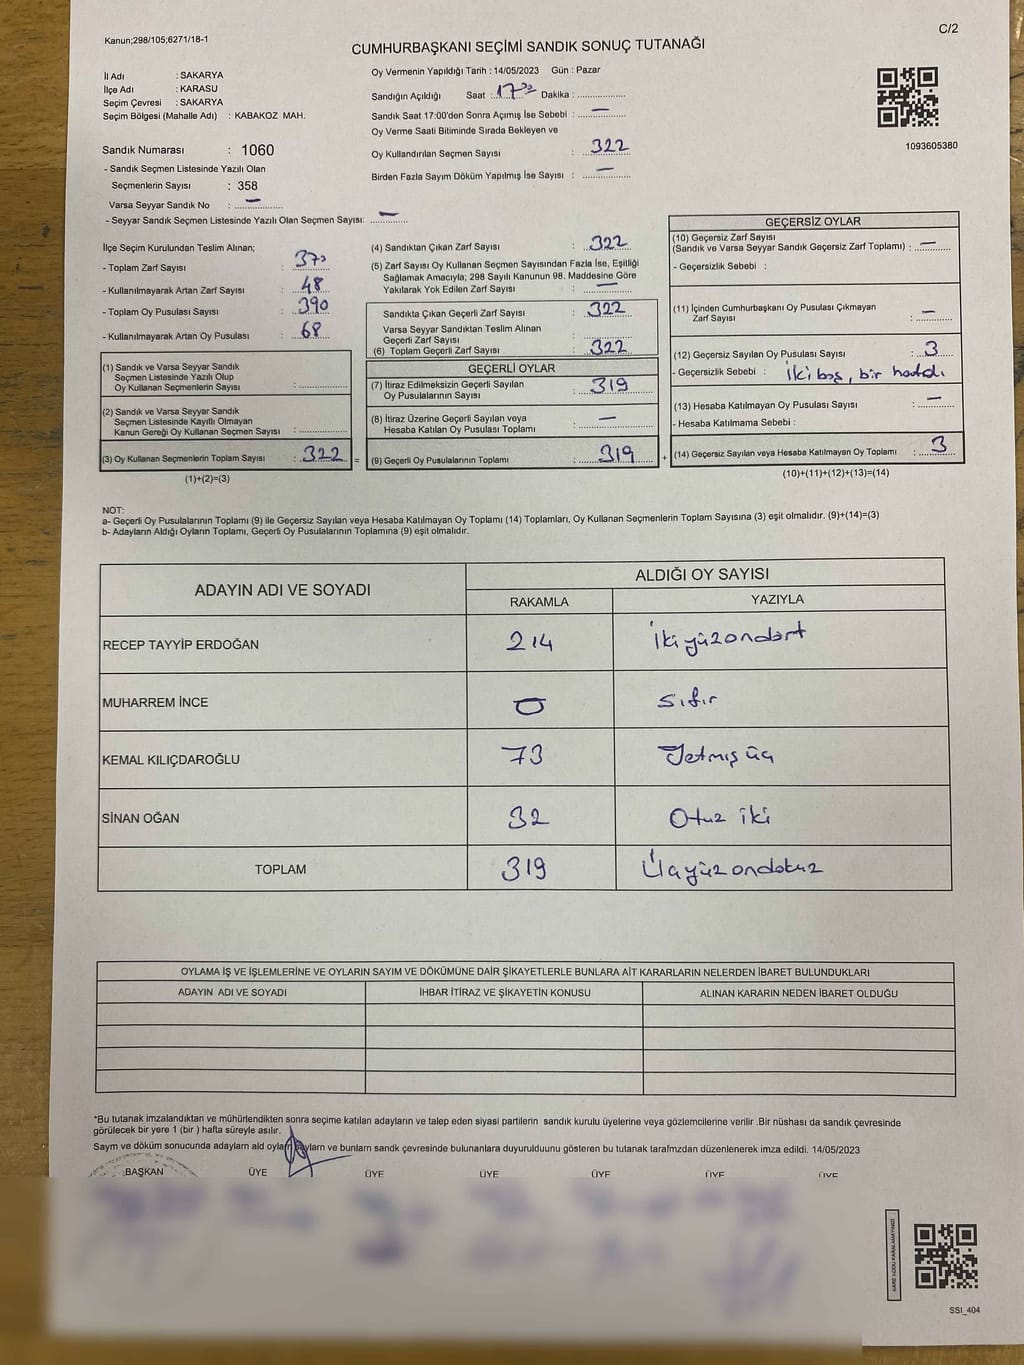 Kanun;298/105;6271/18-1
C/2
CUMHURBAŞKANI SEÇİMİ SANDIK SONUÇ TUTANAĞI
İl Adı : SAKARYA
İlçe Adı : KARASU
Seçim Çevresi : SAKARYA
Seçim Bölgesi (Mahalle Adı) : KABAKOZ MAH.
Sandık Numarası : 1060
- Sandık Seçmen Listesinde Yazılı Olan
Seçmenlerin Sayısı : 358
Varsa Seyyar Sandık No : —
- Seyyar Sandık Seçmen Listesinde Yazılı Olan Seçmen Sayısı: —
Oy Vermenin Yapıldığı Tarih : 14/05/2023 Gün : Pazar
Sandığın Açıldığı Saat : 17 Dakika :
Sandık Saat 17:00'den Sonra Açımış İse Sebebi : —
Oy Verme Saati Bitiminde Sırada Bekleyen ve
Oy Kullandırılan Seçmen Sayısı : 322
Birden Fazla Sayım Döküm Yapılmış İse Sayısı : —
1093605380
İlçe Seçim Kurulundan Teslim Alınan;
- Toplam Zarf Sayısı : 370
- Kullanılmayarak Artan Zarf Sayısı : 48
- Toplam Oy Pusulası Sayısı : 390
- Kullanılmayarak Artan Oy Pusulası : 68
(1) Sandık ve Varsa Seyyar Sandık
Seçmen Listesinde Yazılı Olup
Oy Kullanan Seçmenlerin Sayısı :
(2) Sandık ve Varsa Seyyar Sandık
Seçmen Listesinde Kayıtlı Olmayan
Kanun Gereği Oy Kullanan Seçmen Sayısı :
(3) Oy Kullanan Seçmenlerin Toplam Sayısı : 322 =
(1)+(2)=(3)
(4) Sandıktan Çıkan Zarf Sayısı : 322
(5) Zarf Sayısı Oy Kullanan Seçmen Sayısından Fazla İse, Eşitliği
Sağlamak Amacıyla; 298 Sayılı Kanunun 98. Maddesine Göre
Yakılarak Yok Edilen Zarf Sayısı : —
Sandıkta Çıkan Geçerli Zarf Sayısı : 322
Varsa Seyyar Sandıktan Teslim Alınan
Geçerli Zarf Sayısı :
(6) Toplam Geçerli Zarf Sayısı : 322
GEÇERLİ OYLAR
(7) İtiraz Edilmeksizin Geçerli Sayılan
Oy Pusulalarının Sayısı : 319
(8) İtiraz Üzerine Geçerli Sayılan veya
Hesaba Katılan Oy Pusulası Toplamı : —
(9) Geçerli Oy Pusulalarının Toplamı : 319 +
GEÇERSİZ OYLAR
(10) Geçersiz Zarf Sayısı
(Sandık ve Varsa Seyyar Sandık Geçersiz Zarf Toplamı) : —
- Geçersizlik Sebebi :
(11) İçinden Cumhurbaşkanı Oy Pusulası Çıkmayan
Zarf Sayısı : —
(12) Geçersiz Sayılan Oy Pusulası Sayısı : 3
- Geçersizlik Sebebi : İki boş, bir hatalı
(13) Hesaba Katılmayan Oy Pusulası Sayısı : —
- Hesaba Katılmama Sebebi :
(14) Geçersiz Sayılan veya Hesaba Katılmayan Oy Toplamı : 3
(10)+(11)+(12)+(13)=(14)
NOT:
a- Geçerli Oy Pusulalarının Toplamı (9) ile Geçersiz Sayılan veya Hesaba Katılmayan Oy Toplamı (14) Toplamları, Oy Kullanan Seçmenlerin Toplam Sayısına (3) eşit olmalıdır. (9)+(14)=(3)
b- Adayların Aldığı Oyların Toplamı, Geçerli Oy Pusulalarının Toplamına (9) eşit olmalıdır.
ADAYIN ADI VE SOYADI ALDIĞI OY SAYISI
RAKAMLA YAZIYLA
RECEP TAYYİP ERDOĞAN 214 İkiyüzondört
MUHARREM İNCE 0 sıfır
KEMAL KILIÇDAROĞLU 73 Yetmiş üç
SİNAN OĞAN 32 Otuz iki
TOPLAM 319 Üçyüzondokuz
OYLAMA İŞ VE İŞLEMLERİNE VE OYLARIN SAYIM VE DÖKÜMÜNE DAİR ŞİKAYETLERLE BUNLARA AİT KARARLARIN NELERDEN İBARET BULUNDUKLARI
ADAYIN ADI VE SOYADI İHBAR İTİRAZ VE ŞİKAYETİN KONUSU ALINAN KARARIN NEDEN İBARET OLDUĞU
*Bu tutanak imzalandıktan ve mühürlendikten sonra seçime katılan adayların ve talep eden siyasi partilerin sandık kurulu üyelerine veya gözlemcilerine verilir .Bir nüshası da sandık çevresinde
görülecek bir yere 1 (bir ) hafta süreyle asılır.
Sayım ve döküm sonucunda adayların ald oyların ve bunların sandk çevresinde bulunanlara duyurulduunu gösteren bu tutanak tarafmzdan düzenlenerek imza edildi. 14/05/2023
BAŞKAN ÜYE ÜYE ÜYE ÜYE ÜYE ÜYE
KARE KODU KARALAMAYINIZ!
SSI_404